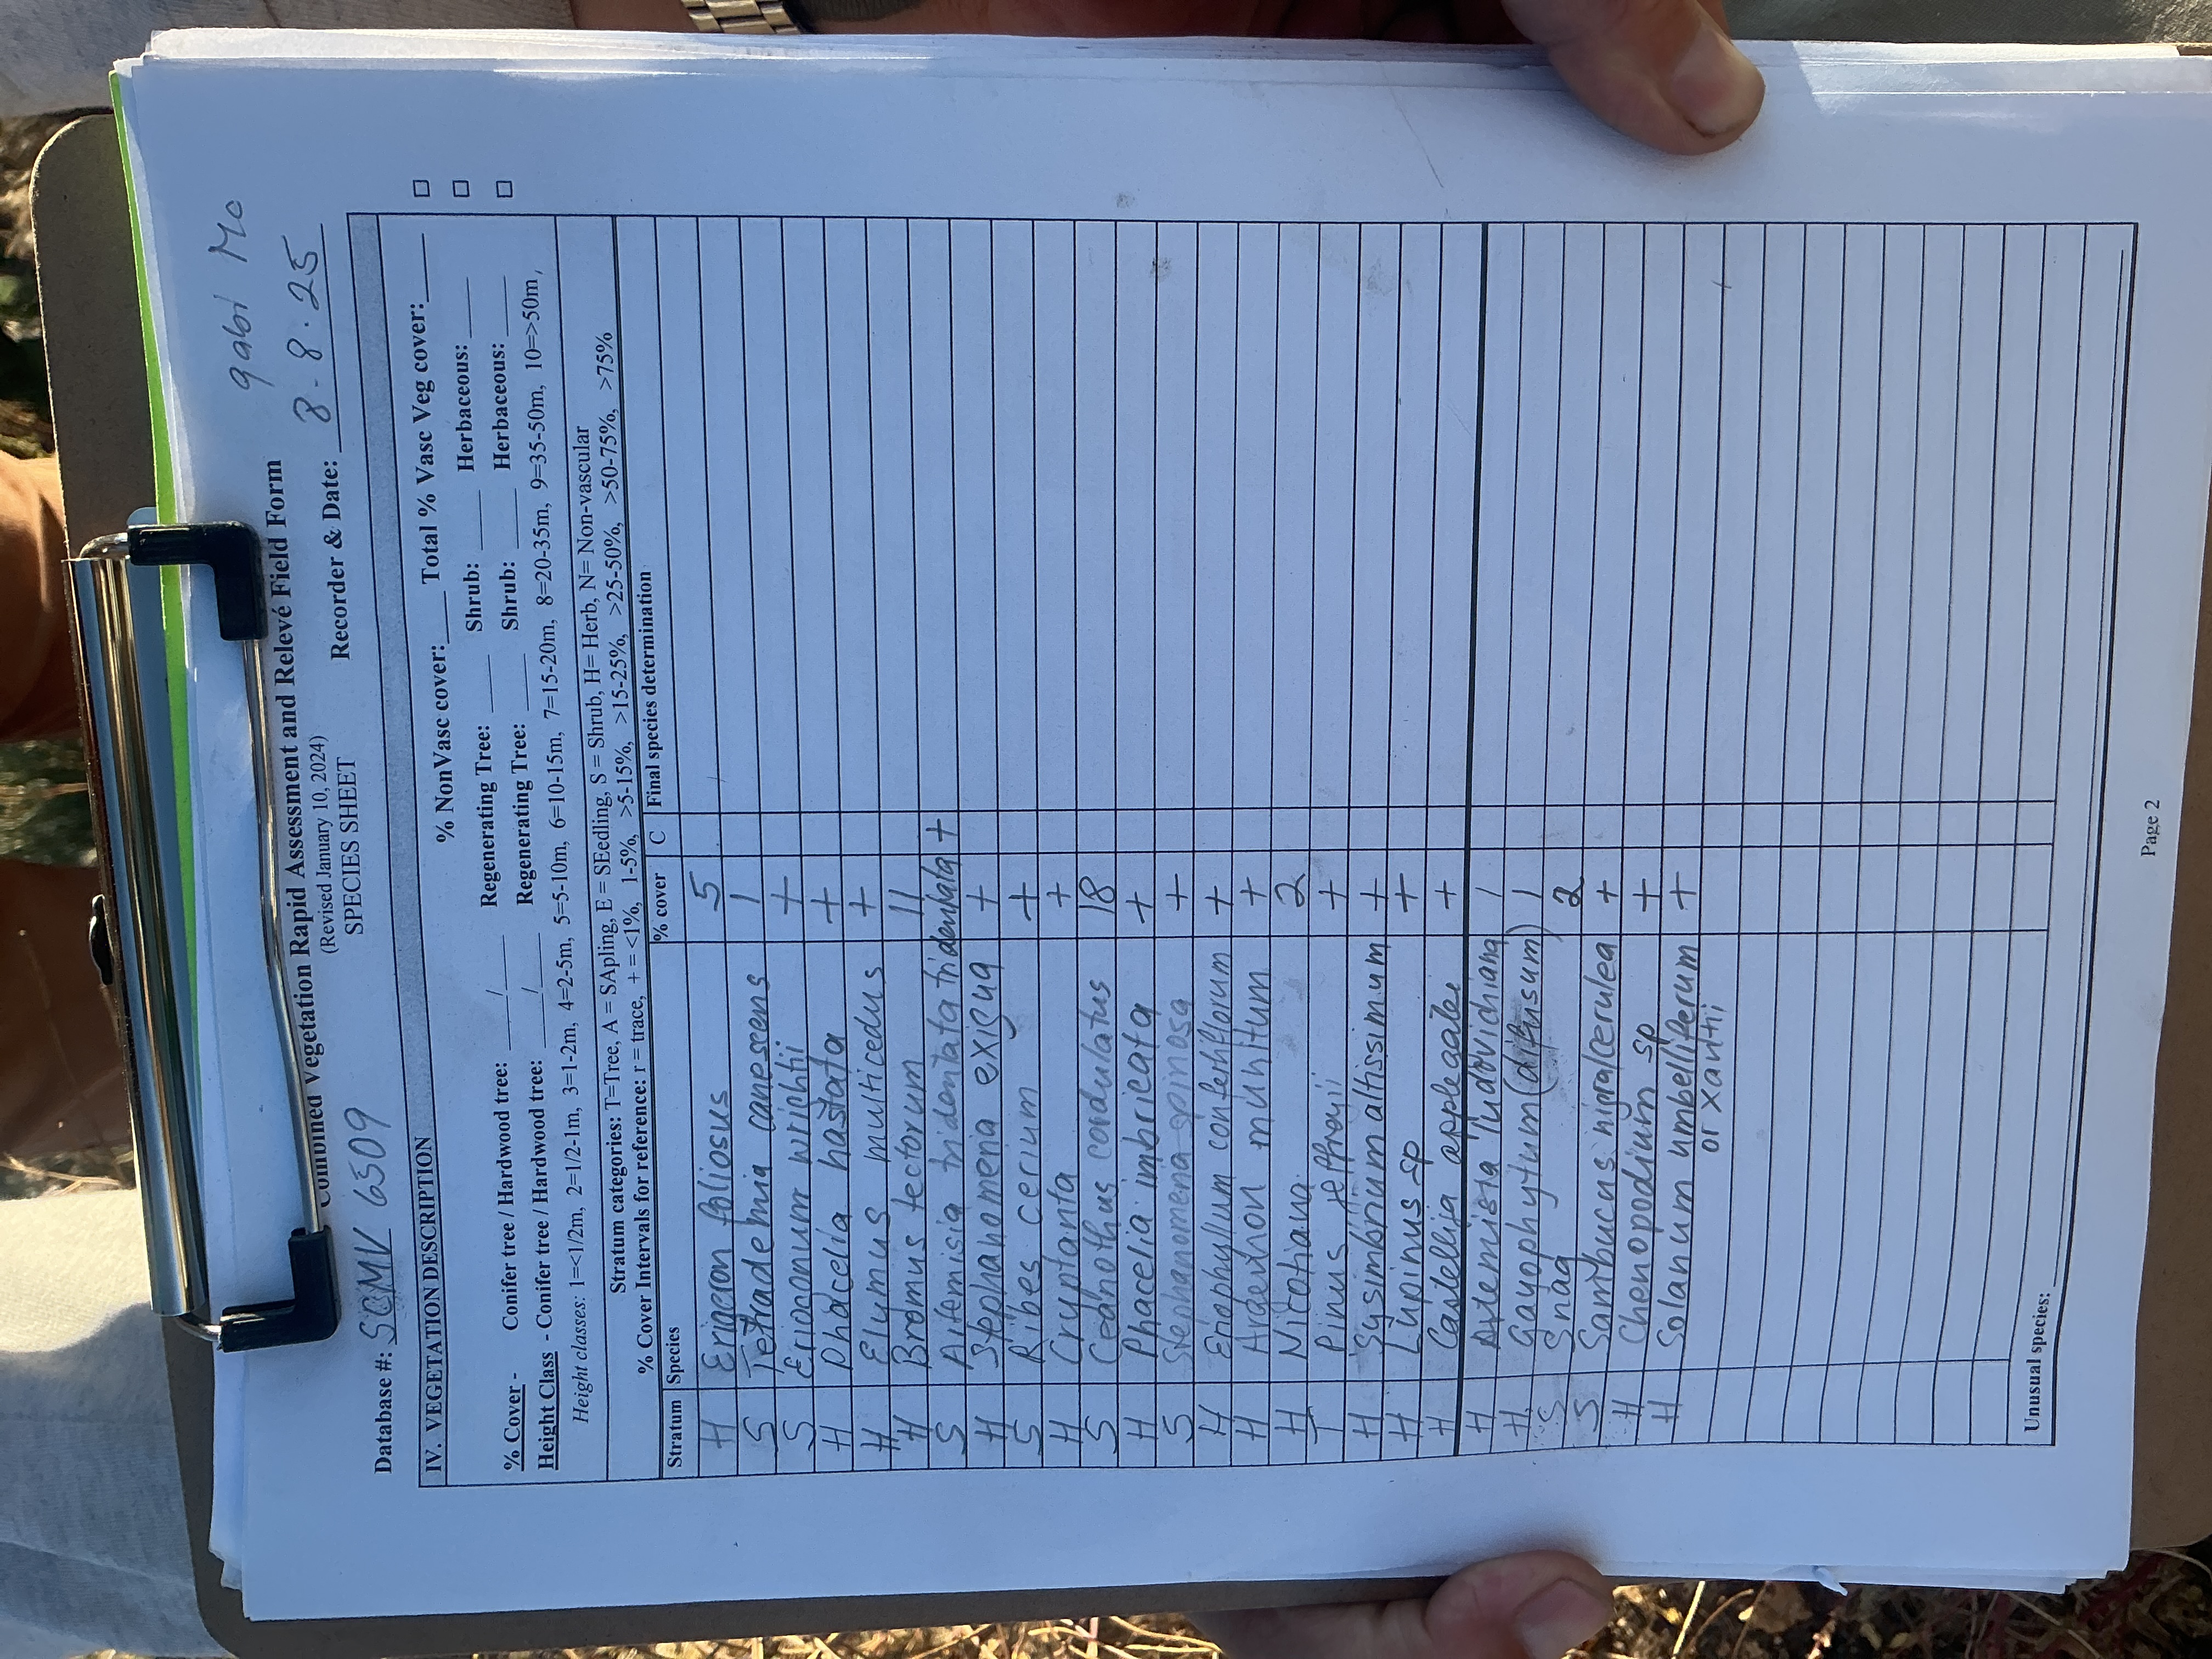 gabi Mc
Combined Vegetation Rapid Assessment and Relevé Field Form
(Revised January 10, 2024)
SPECIES SHEET
Database #: SCMV 6509 Recorder & Date: 8-8-25
IV. VEGETATION DESCRIPTION
% NonVasc cover:___ Total % Vasc Veg cover:____ □
% Cover - Conifer tree / Hardwood tree: ___/___ Regenerating Tree: ____ Shrub: ____ Herbaceous: ____ □
Height Class - Conifer tree / Hardwood tree: ___/___ Regenerating Tree: ____ Shrub: ____ Herbaceous: ____ □
Height classes: 1=<1/2m, 2=1/2-1m, 3=1-2m, 4=2-5m, 5=5-10m, 6=10-15m, 7=15-20m, 8=20-35m, 9=35-50m, 10=>50m,
Stratum categories: T=Tree, A = SApling, E = SEedling, S = Shrub, H= Herb, N= Non-vascular
% Cover Intervals for reference: r = trace, + = <1%, 1-5%, >5-15%, >15-25%, >25-50%, >50-75%, >75%
Stratum Species % cover C Final species determination
H Erigeron foliosus 5
S Tetrademia canesens 1
S Eriogonum wrightii +
H Phacelia hastata +
H Elymus multicedus +
H Bromus tectorum 11
S Artemisia tridentata tridentata +
H Stephanomeria exigua +
S Ribes cerium +
H Cryptanta +
S Ceanothus cordulatus 18
H Phacelia imbricata +
S Stephanomeria spinosa +
H Eriophyllum confertiflorum +
H Argentron munhitum +
H Nicotiana 2
T Pinus jeffreyii +
H Sysimbrium altissimum +
H Lupinus sp +
H Castellija applegatei +
H Artemisia ludovichiana 1
H Gayophytum (diffusum) 1
S Snag 2
S Sambucus nigra/cerulea +
H Chenopodium sp +
H Solanum umbelliferum +
or xantii
Unusual species:
Page 2